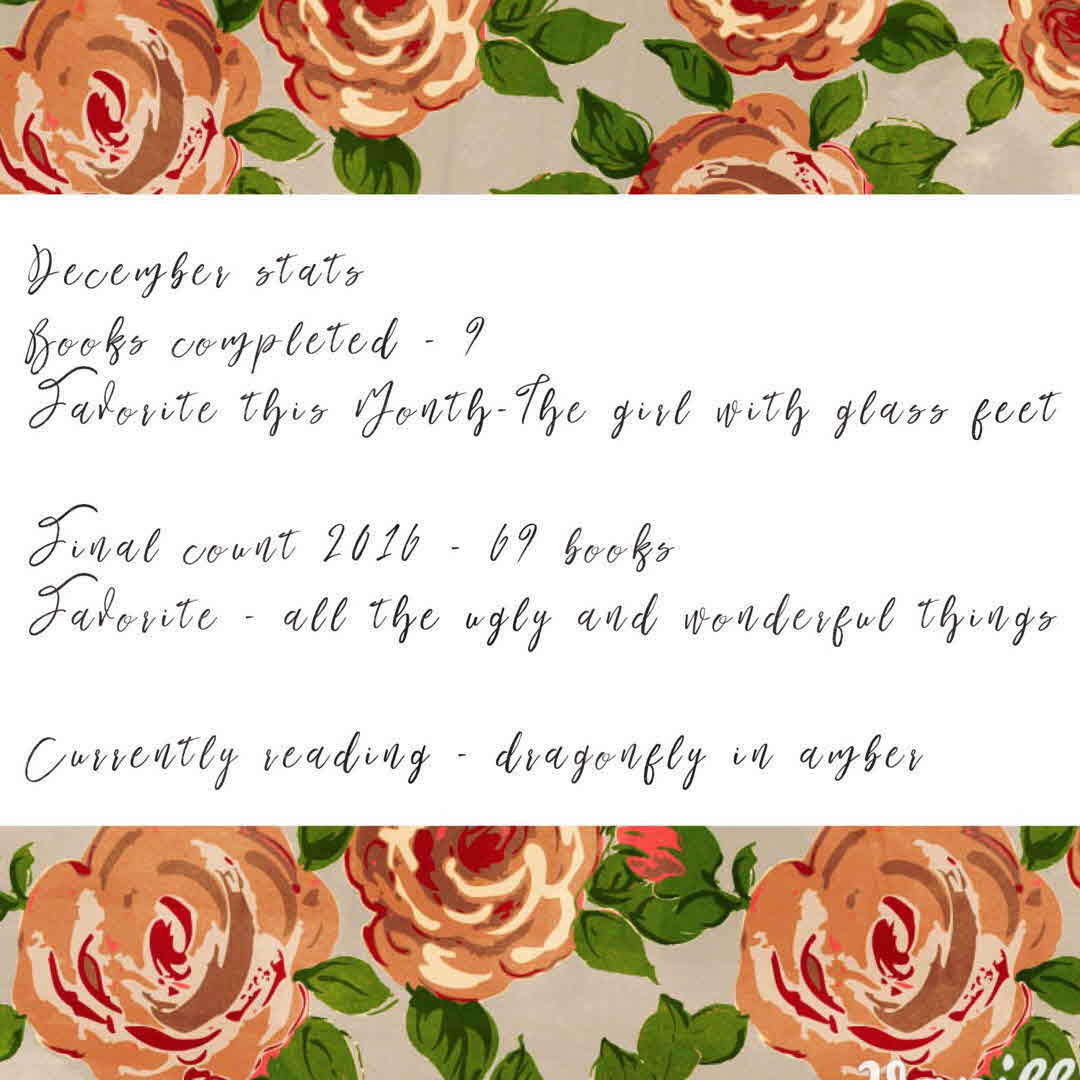 December stats
Books completed - 9
Favorite this Month-The girl with glass feet
Final count 2016 - 69 books
Favorite - all the ugly and wonderful things
Currently reading - dragonfly in amber